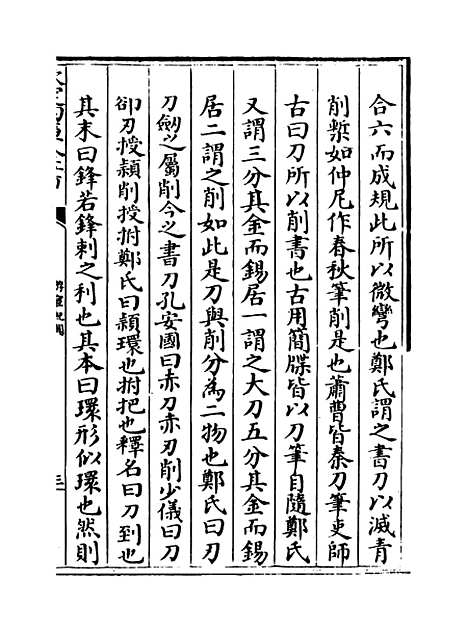 合六而成規此所以微彎也鄭氏謂之書刀以滅青
削槧如仲尼作春秋筆削是也蕭曹皆秦刀筆吏師
古曰刀所以削書也古用簡牒皆以刀筆自隨鄭氏
又謂三分其金而錫居一謂之大刀五分其金而錫
居二謂之削如此是刀與削分為二物也鄭氏曰刃
刀劒之屬削今之書刀孔安國曰赤刀赤刃削少儀曰刀
卻刃授穎削授拊鄭氏曰穎環也拊把也釋名曰刀到也
其末曰鋒若鋒刺之利也其本曰環形似環也然則
三